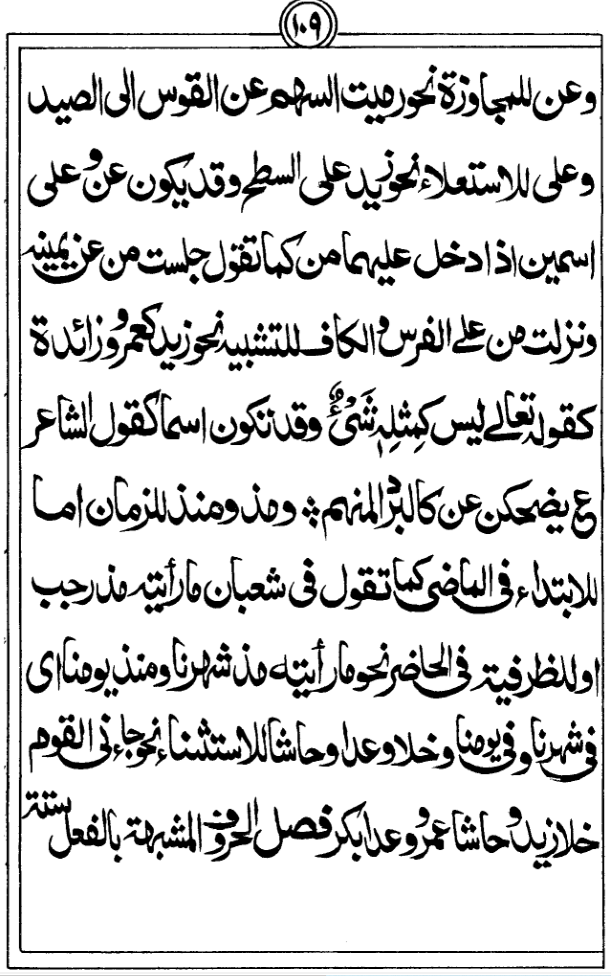 ١٠٩
وعن للمجاوزة نحو رميت السهم عن القوس الى الصيد
وعلى للاستعلاء نحو زيد على السطح وقد يكون عن وعلى
اسمين اذا دخل عليهما من كما تقول جلست من عن يمينه
ونزلت من على الفرس والكاف للتشبيه نحو زيد كعمرو وزائدة
كقوله تعالى ليس كَمِثْلِهٖ شَىْءٌ وقد تكون اسما كقول الشاعر
ع يضحكن عن كالبرد المنهم ؞ ومذ ومنذ للزمان اما
للابتداء فى الماضى كما تقول فى شعبان ما رأيته مذ رجب
او للظرفية فى الحاضر نحو ما رأيته مذ شهرنا ومنذ يومنا اى
فى شهرنا وفى يومنا وخلا وعدا وحاشا للاستثناء نحو جاءنى القوم
خلا زيد وحاشا عمرو وعدا بكر فصل الحروف المشبهة بالفعل ستة